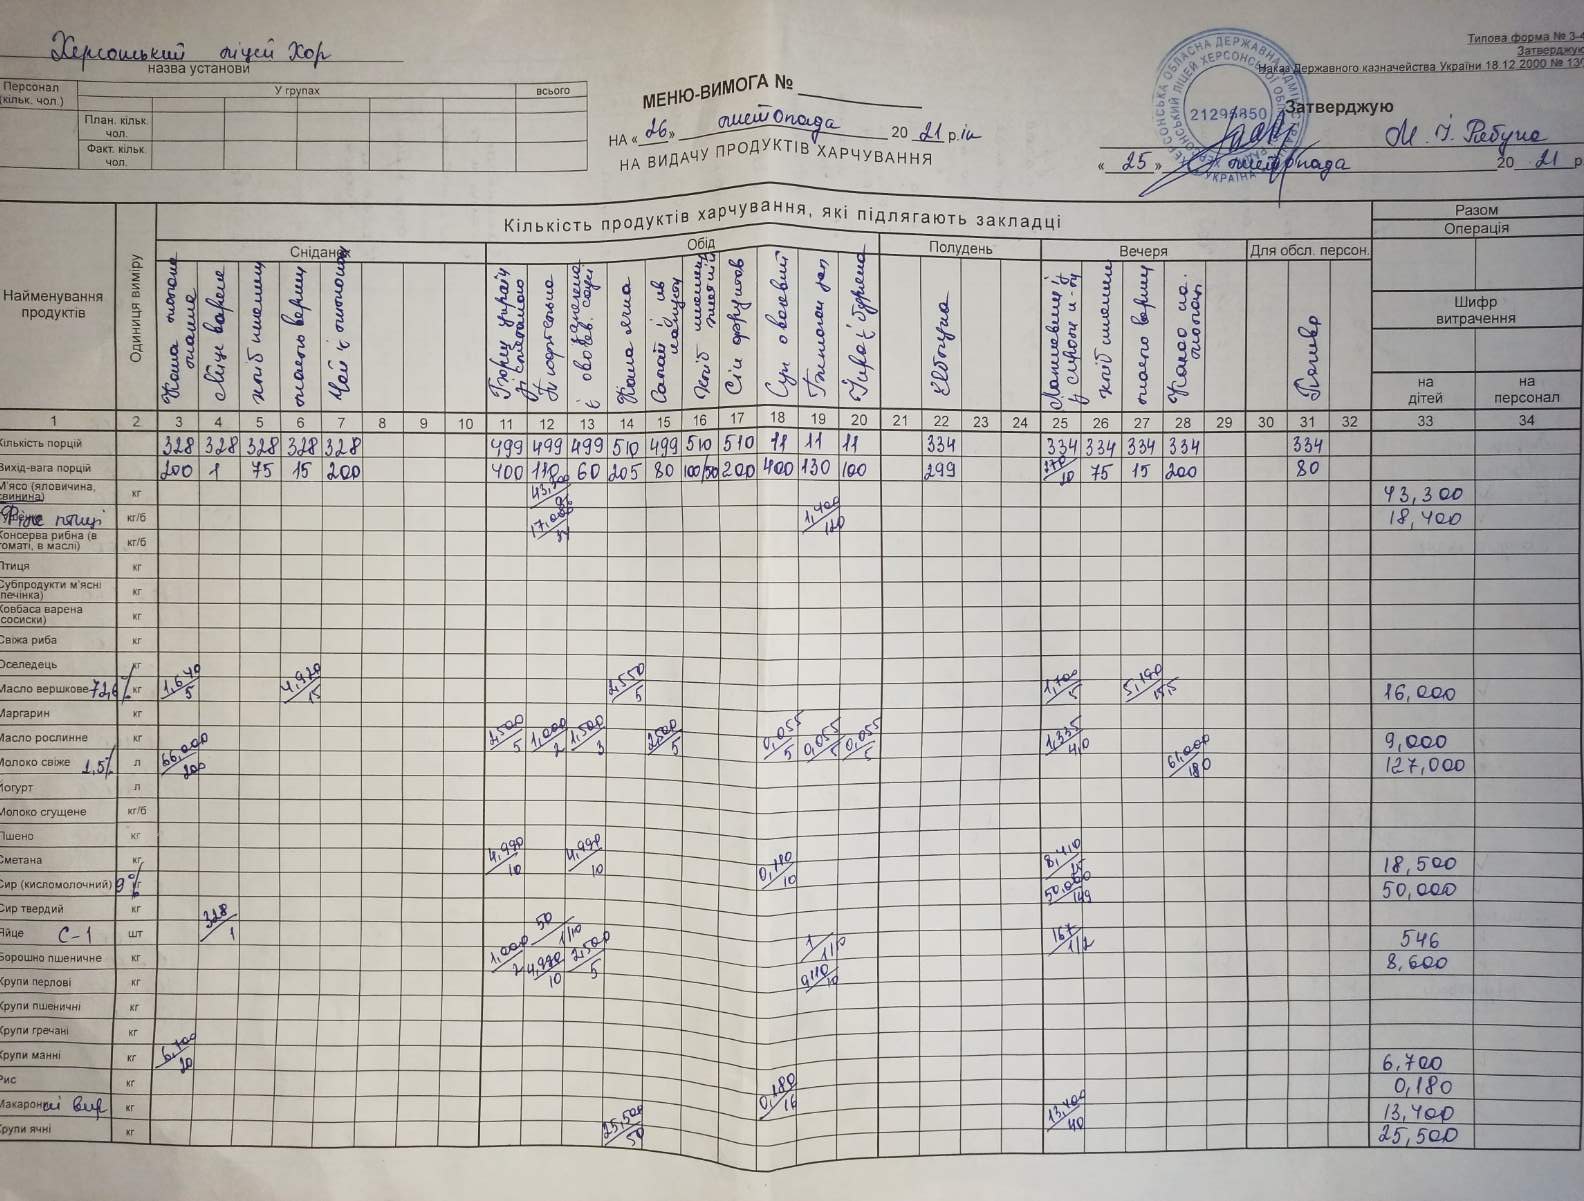 Херсонський ліцей Хор
назва установи
Типова форма № 3-4
Затверджую
Наказ Державного казначейства України 18.12.2000 № 130
Персонал (кільк. чол.)
У групах
всього
План. кільк. чол.
Факт. кільк. чол.
МЕНЮ-ВИМОГА №
НА «26» листопада 20 21 р.
НА ВИДАЧУ ПРОДУКТІВ ХАРЧУВАННЯ
21295850
УКРАЇНА
Затверджую
«25» листопада 20 21 р
Найменування продуктів
Одиниця виміру
Кількість продуктів харчування, які підлягають закладці
Разом
Операція
Сніданок
Обід
Полудень
Вечеря
Для обсл. персон.
Шифр витрачення
на дітей
на персонал
Каша молочна манна
Яйце варене
Хліб пшенич
Масло верш
Чай з
Каша ячна
Сік фруктов
Яблуко
Хліб пшенич
Масло верш
Какао на
Печиво
1 2 3 4 5 6 7 8 9 10 11 12 13 14 15 16 17 18 19 20 21 22 23 24 25 26 27 28 29 30 31 32 33 34
Кількість порцій 328 328 328 328 328 499 499 499 510 499 510 510 11 11 11 334 334 334 334 334 334
Вихід-вага порцій 200 1 75 15 200 400 110 60 205 80 100/50 200 400 130 100 299 270/10 75 15 200 80
М'ясо (яловичина, свинина) кг 43,300
43,300
Філе птиці кг/б 17,000 1,400/120 18,400
Консерва рибна (в томаті, в маслі) кг/б
Птиця кг
Субпродукти м'ясні (печінка) кг
Ковбаса варена (сосиски) кг
Свіжа риба кг
Оселедець кг
Масло вершкове 72,6% кг 1,640/5 4,920/15 2,550/5 1,700/5 5,190/15,5 16,000
Маргарин кг
Масло рослинне кг 2,500/5 1,000/2 1,500/3 2,500/5 0,055/5 0,055/5 0,055/5 1,335/4,0 9,000
Молоко свіже 1,5% л 66,000/200 61,000/180 127,000
Йогурт л
Молоко сгущене кг/б
Пшено кг
Сметана кг 4,990/10 4,990/10 0,110/10 8,410/25 18,500
Сир (кисломолочний) 9% кг 50,000/149 50,000
Сир твердий кг
Яйце С-1 шт 328/1 50/1/10 1/1/10 167/1/2 546
Борошно пшеничне кг 1,000/2 4,990/10 2,500/5 0,110/10 8,600
Крупи перлові кг
Крупи пшеничні кг
Крупи гречані кг
Крупи манні кг 6,700/20 6,700
Рис кг 0,180/16 0,180
Макаронні вир кг 13,400/40 13,400
Крупи ячні кг 25,500/50 25,500